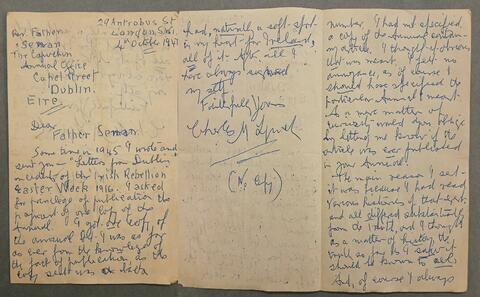 29 Antrobus St
London S.W.1.
4th October 1947
Rev. Father
Senan.
The Capuchin
Annual Office
Capel Street
Dublin.
EIRE.
Dear
Father Senan.
Some time in 1945 I wrote and
sent you "Letters from Dublin,
of the Irish Rebellion
Easter Week 1916. I asked
for privilege of publication the
of one copy of the
Annual. I got one copy of
the annual but I was as far
as ever from the knowledge of
the fact of publication as the
copy sent was a late
number. I had not specified
a copy of the Annual contain-
my article. I thought it obvious
that was meant. I felt no
annoyance, as of course I
should have specified the
particular Annual I meant.
As a mere matter of
would you oblige
by letting me know if the
article was ever published
in your Annual.
The main reason I sent
it was because I had read
various histories of that event
and all differed substantially
from the truth, and I thought
as a matter of history, the
truth so far as I saw it
should be known to all.
And, of course I always
had, naturally a soft spot
in my heart for Ireland,
all of it. After all I
have always
myself
Faithfully Yours
Charles M